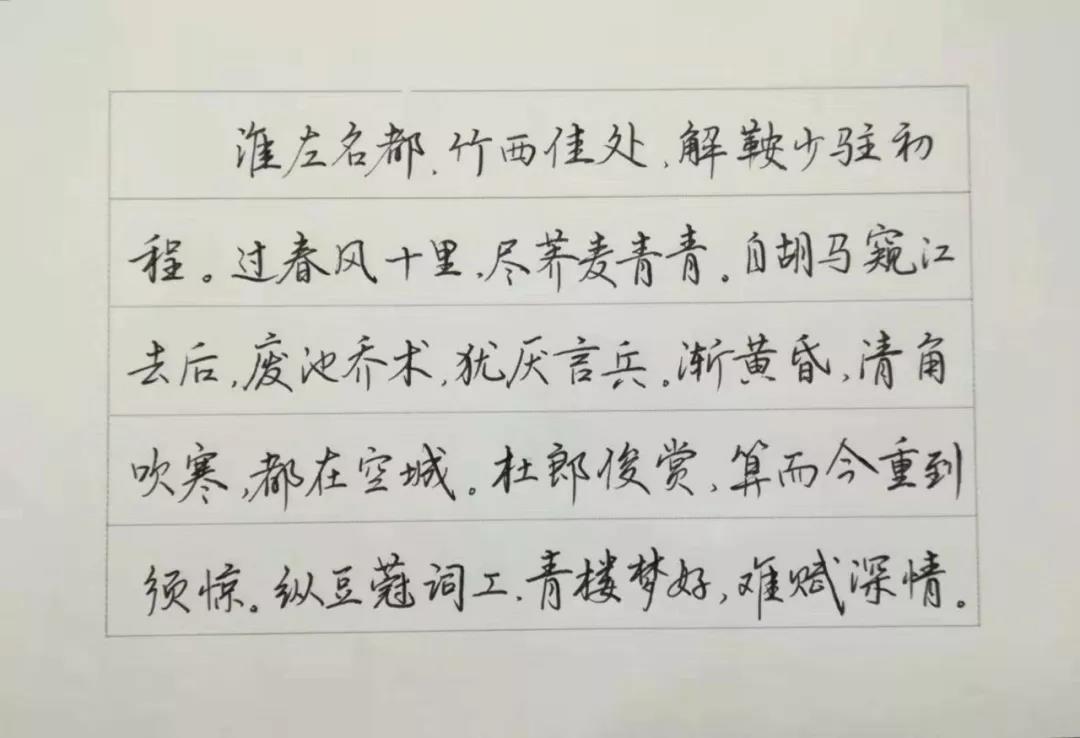 淮左名都，竹西佳处，解鞍少驻初
程。过春风十里，尽荠麦青青。自胡马窥江
去后，废池乔木，犹厌言兵。渐黄昏，清角
吹寒，都在空城。杜郎俊赏，算而今重到
须惊。纵豆蔻词工，青楼梦好，难赋深情。